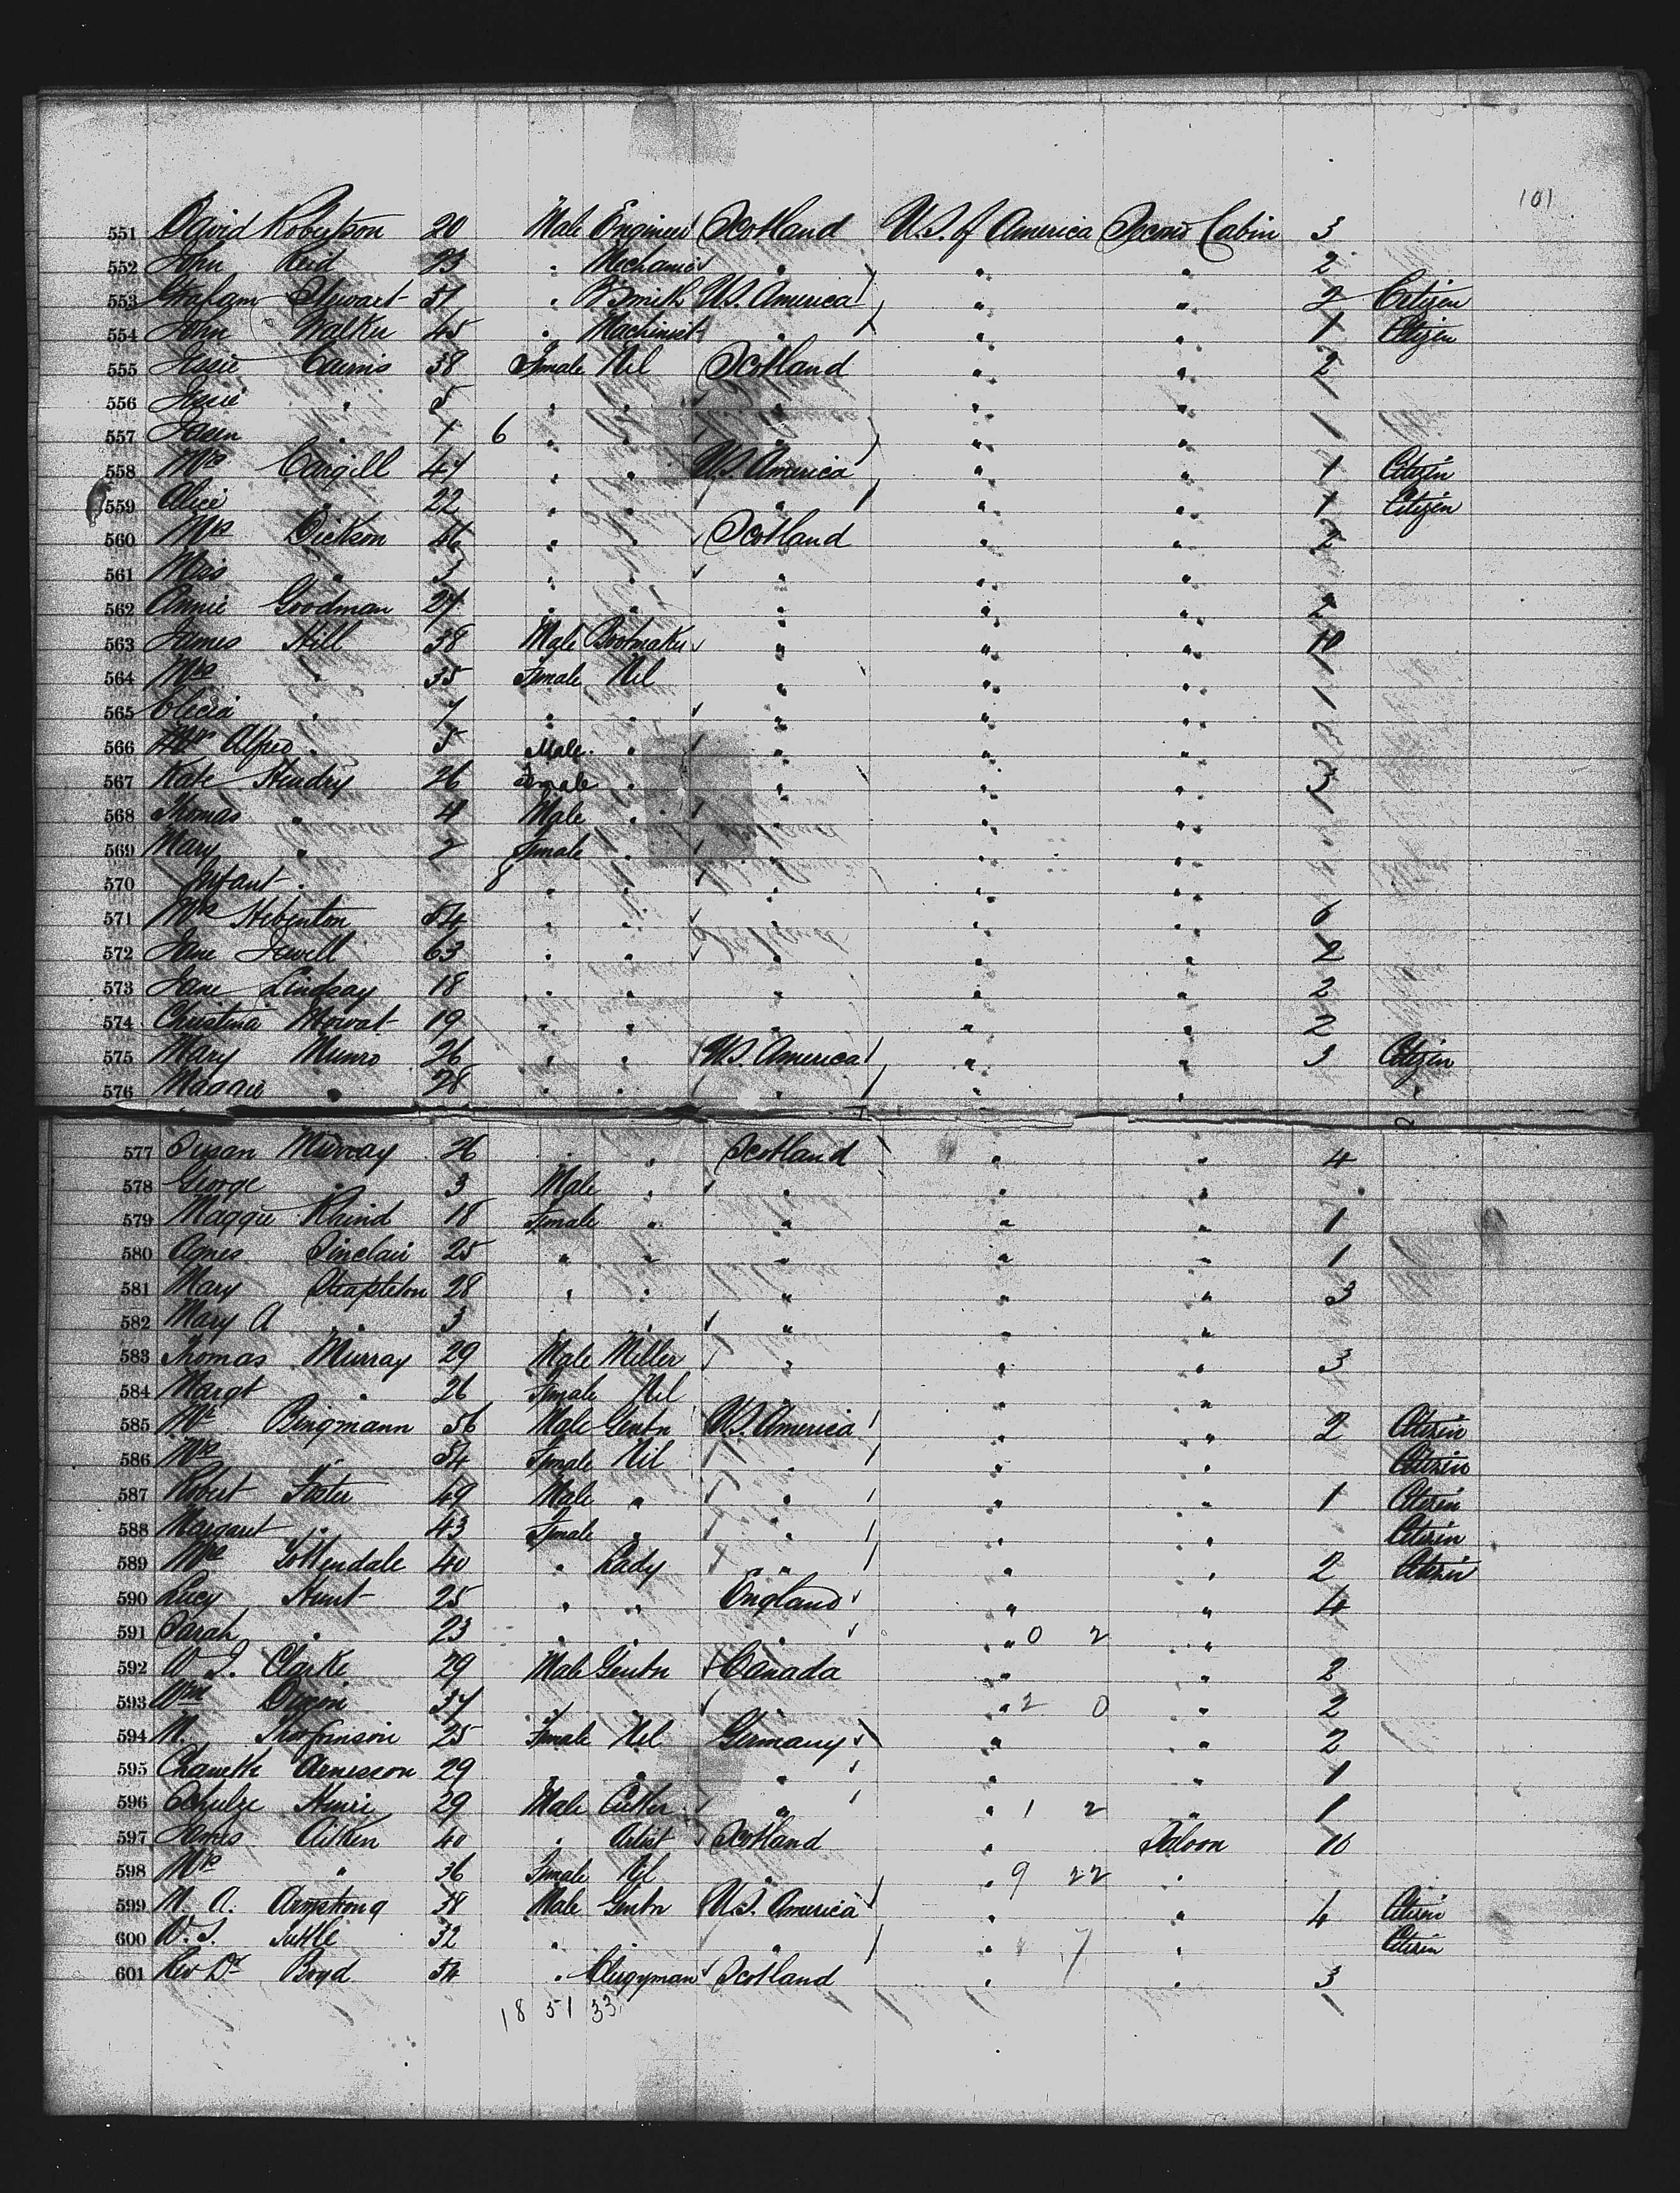 101
551 David Robertson 20 Male Engineer Scotland U.S. of America Second Cabin 3
552 John Reid 23 " Mechanic " " " 2
553 Graham Stewart 51 " B Smith U.S. America " " 2 Citizen
554 John Walker 45 " Machinist " " " 1 Citizen
555 Jessie Cairns 38 Female Nil Scotland " " 2
556 Jessie " 5 " " " " " 1
557 " 1 6 " " " " " 1
558 Mrs Cargill 47 " " U.S. America " " 1 Citizen
559 Alice " 22 " " " " " 1 Citizen
560 Mrs Dickson 46 " " Scotland " " 2
561 Miss " 3 " " " " "
562 Annie Goodman 27 " " " " " 2
563 James Hill 38 Male Bootmaker " " " 10
564 Mrs " 35 Female Nil " " " 1
565 Elicia " 7 " " " " " 1
566 Mr Alfred " 5 Male " " " "
567 Kate Hendry 26 Female " " " " 3
568 Thomas " 4 Male " " " " 1
569 Mary " 2 Female " " " "
570 Infant " 8 " " " " "
571 Mrs Hebenton 54 " " " " " 6
572 Jane Jewell 63 " " " " " 2
573 Jane Lindsay 18 " " " " " 2
574 Christina Mowat 19 " " " " " 2
575 Mary Munro 26 " " U.S. America " " 3 Citizen
576 Maggie " 28 " " " " " "
577 Susan Murray 26 " " Scotland " " 4
578 George " 3 Male " " " "
579 Maggie Raind 18 Female " " " " 1
580 Agnes Sinclair 25 " " " " " 1
581 Mary Steapleton 28 " " " " " 3
582 Mary A " 3 " " " " "
583 Thomas Murray 29 Male Miller " " " 3
584 Margt " 26 Female Nil " " "
585 Mr Bingmann 56 Male Gentn U.S. America " " 2 Citizen
586 Mrs " 54 Female Nil " " " Citizen
587 Robert Foster 49 Male " " " " 1 Citizen
588 Margaret " 43 Female " " " " Citizen
589 Mrs Tottendale 40 " Lady " " " 2 Citizen
590 Lucy Hunt 25 " " England " " 4
591 Sarah " 23 " " " 0 2 "
592 W. J. Clarke 29 Male Gentn Canada " " 2
593 Wm 37 " " " 2 0 " 2
594 M. Thorfinnson 25 Female Nil Germany " " 2
595 Arnesson 29 " " " " " 1
596 Schulze Henri 29 Male Cutter " " 1 2 " 1
597 James Aitken 40 " Artist Scotland " Saloon 10
598 Mrs " 36 Female Nil " " 9 22 "
599 M. A. Armstrong 38 Male Gentn U.S. America " " 4 Citizen
600 W. S. Tuttle 32 " " " " 7 " Citizen
601 Rev Dr Boyd 54 " Clergyman Scotland " " 3
18 51 33